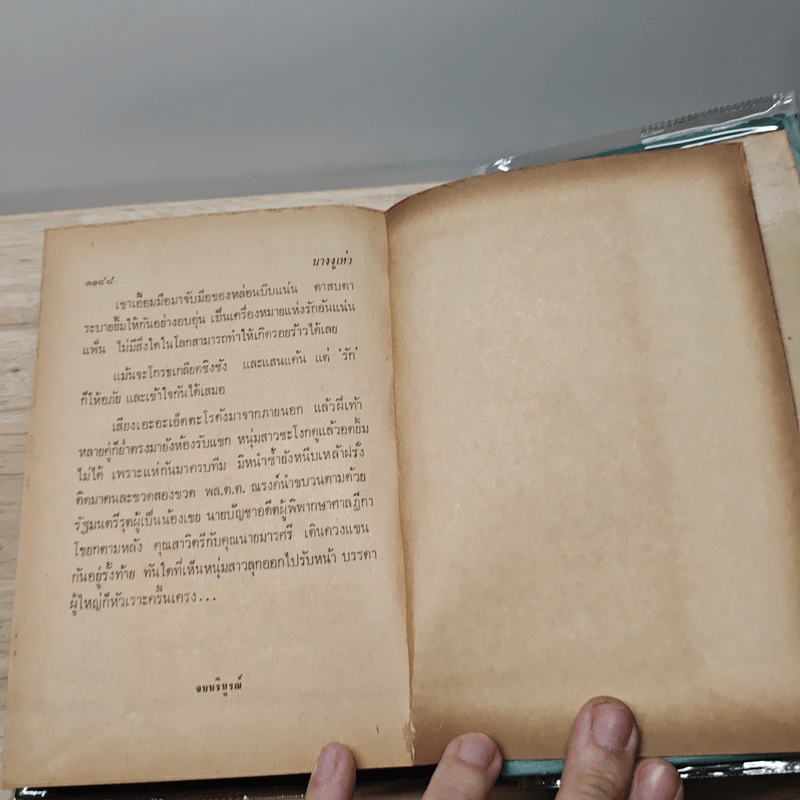 ๑๑๔๘ นางงูเห่า
เขาเอื้อมมือมาจับมือของหล่อนบีบแน่น ตาสบตา
ระบายยิ้มให้กันอย่างอบอุ่น เป็นเครื่องหมายแห่งรักอันแน่น
แฟ้น ไม่มีสิ่งใดในโลกสามารถทำให้เกิดรอยร้าวได้เลย
แม้นจะโกรธเกลียดชิงชัง และแสนแค้น แต่ 'รัก'
ก็ให้อภัย และเข้าใจกันได้เสมอ
เสียงเอะอะเอ็ดตะโรดังมาจากภายนอก แล้วฝีเท้า
หลายคู่ก็ย่ำตรงมายังห้องรับแขก หนุ่มสาวชะโงกดูแล้วอดยิ้ม
ไม่ได้ เพราะแห่กันมาครบทีม มิหนำซ้ำยังหนีบเหล้าฝรั่ง
ติดมาคนละขวดสองขวด พล.ต.ต. ณรงค์นำขบวนตามด้วย
รัฐมนตรีรุตผู้เป็นน้องเขย นายบัญชาอดีตผู้พิพากษาศาลฎีกา
โขยกตามหลัง คุณสาวิตรีกับคุณนายมารศรี เดินควงแขน
กันอยู่รั้งท้าย ทันใดที่เห็นหนุ่มสาวลุกออกไปรับหน้า บรรดา
ผู้ใหญ่ก็หัวเราะครื้นเครง...
จบบริบูรณ์